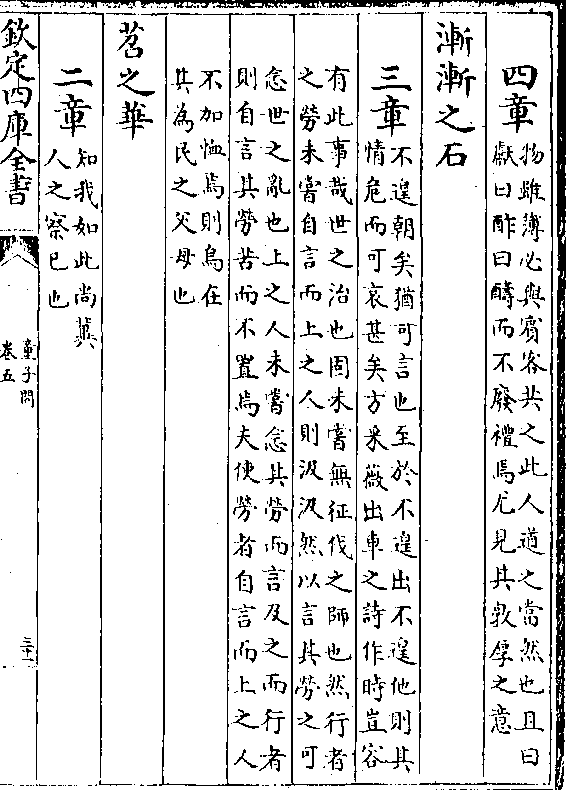 四章
物雖薄必與賓客共之此人道之當然也且曰
獻曰酢曰醻而不廢禮焉尤見其敦厚之意
漸漸之石
三章
不遑朝矣猶可言也至於不遑出不遑他則其
情危而可哀甚矣方采薇出車之詩作時豈容
有此事哉世之治也固未嘗無征伐之師也然行者
之勞未嘗自言而上之人則汲汲然以言其勞之可
念世之亂也上之人未嘗念其勞而言及之而行者
則自言其勞苦而不置焉夫使勞者自言而上之人
不加恤焉則烏在
其為民之父母也
苕之華
二章
知我如此尚冀
人之察已也
欽定四庫全書
童子問
卷五
三十一